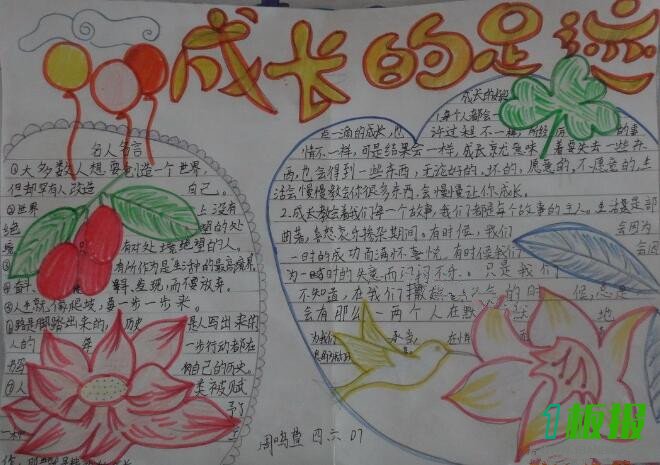 成长的足迹
名人名言
①大多数人想要创造一个世界,
但却罕有人改造 自己。
②世界 上没有
绝 望的处
境 有对处境绝望的人。
有所作为是生活中的最高境界。
④奋斗、 寻、发现,而不屈服。
⑤人生就像爬坡,要一步一步来。
⑥路是脚踏出来的,历史 是人写出来的
人的 一步行动都在
书写 自己的历史。
⑦人 类被赋
予了
一种
成长的
1.每个人都会
点一滴的成长,也 许过程不一样, 的事
情不一样,可是结果会一样,成长就意味着要失去一些东
西,也会得到一些东西,无论好的、坏的,愿意的,不愿意的,生
活会慢慢教会你很多东西,会慢慢让你成长。
2.成长教会着我们每一个故事,我们都是每个故事的主人。生活是是部
曲著,喜怒哀乐掺杂期间。有时候,我们 会因为
一时的成功而满怀喜悦,有时候我们 会因
为一时的失意而闷闷不乐。只是我们
不知道,在我们 的时候,总是
会有那么一两个人在默默 地
为我们
周鸣萱 四六 07
1板报